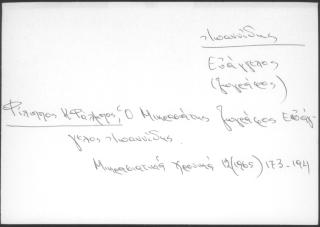 Ἰωαννίδης
Εὐάγγελος
(ζωγράφος)
Φίλιππος Κ. Φάλμπος, Ὁ Μικρασιάτης ζωγράφος Εὐάγ-
γελος Ἰωαννίδης.
Μικρασιατικά Χρονικά 12 (1965) 173-194